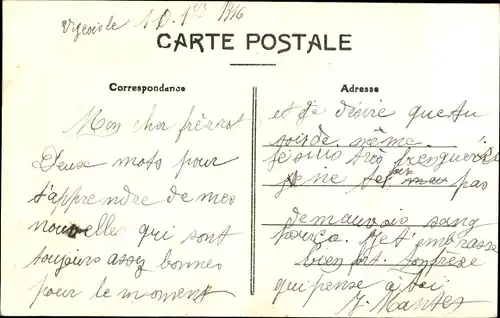 1916
CARTE POSTALE
Correspondance
Mon cher frère
Deux mots pour
t'apprendre de mes
nouvelles qui sont
toujours assy bonnes
pour le moment
Adresse
et je désire que tu
soit de même.
je suis très
je ne te pas
de mauvois sang
pource. Je t'embrasse
bien fort. ton frère
qui pense a toi
J. Mantes